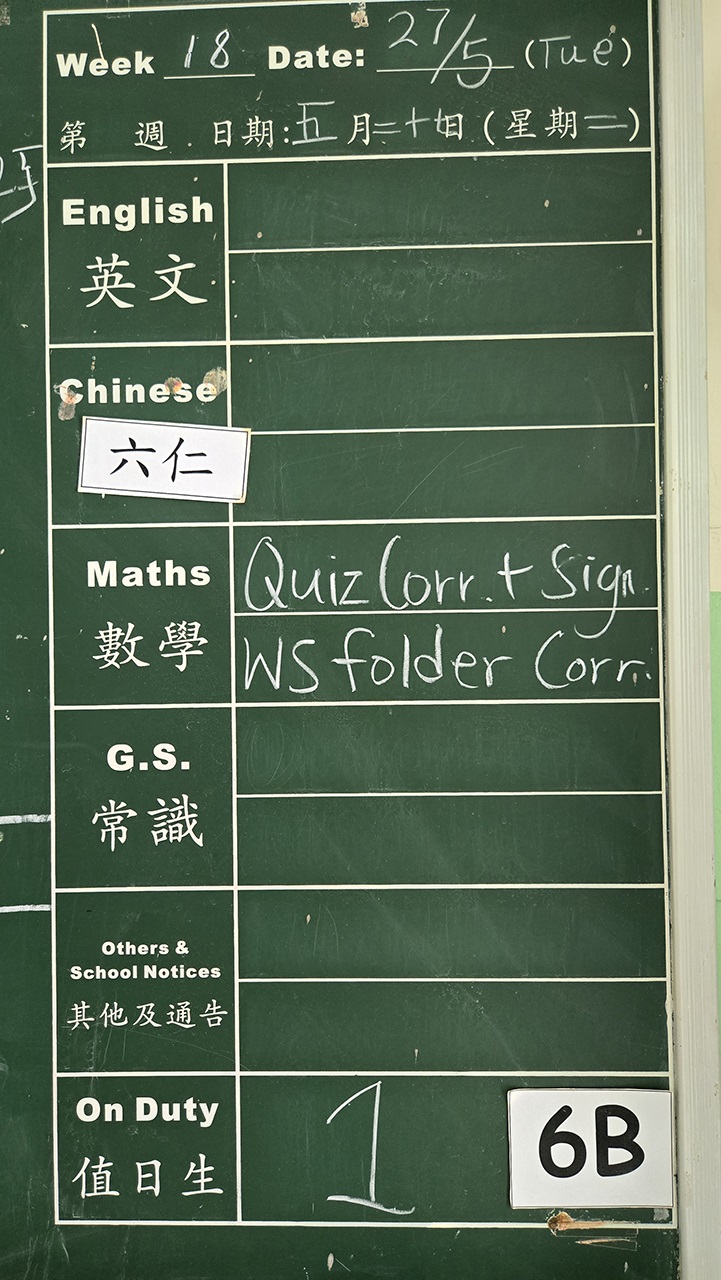 Week 18 Date: 27/5 (Tue)
第 週 日期:五月二十七日(星期二)
English
英文
Chinese
六仁
Maths
數學
Quiz Corr. + Sign.
WS folder Corr.
G.S.
常識
Others &
School Notices
其他及通告
On Duty
值日生
1
6B